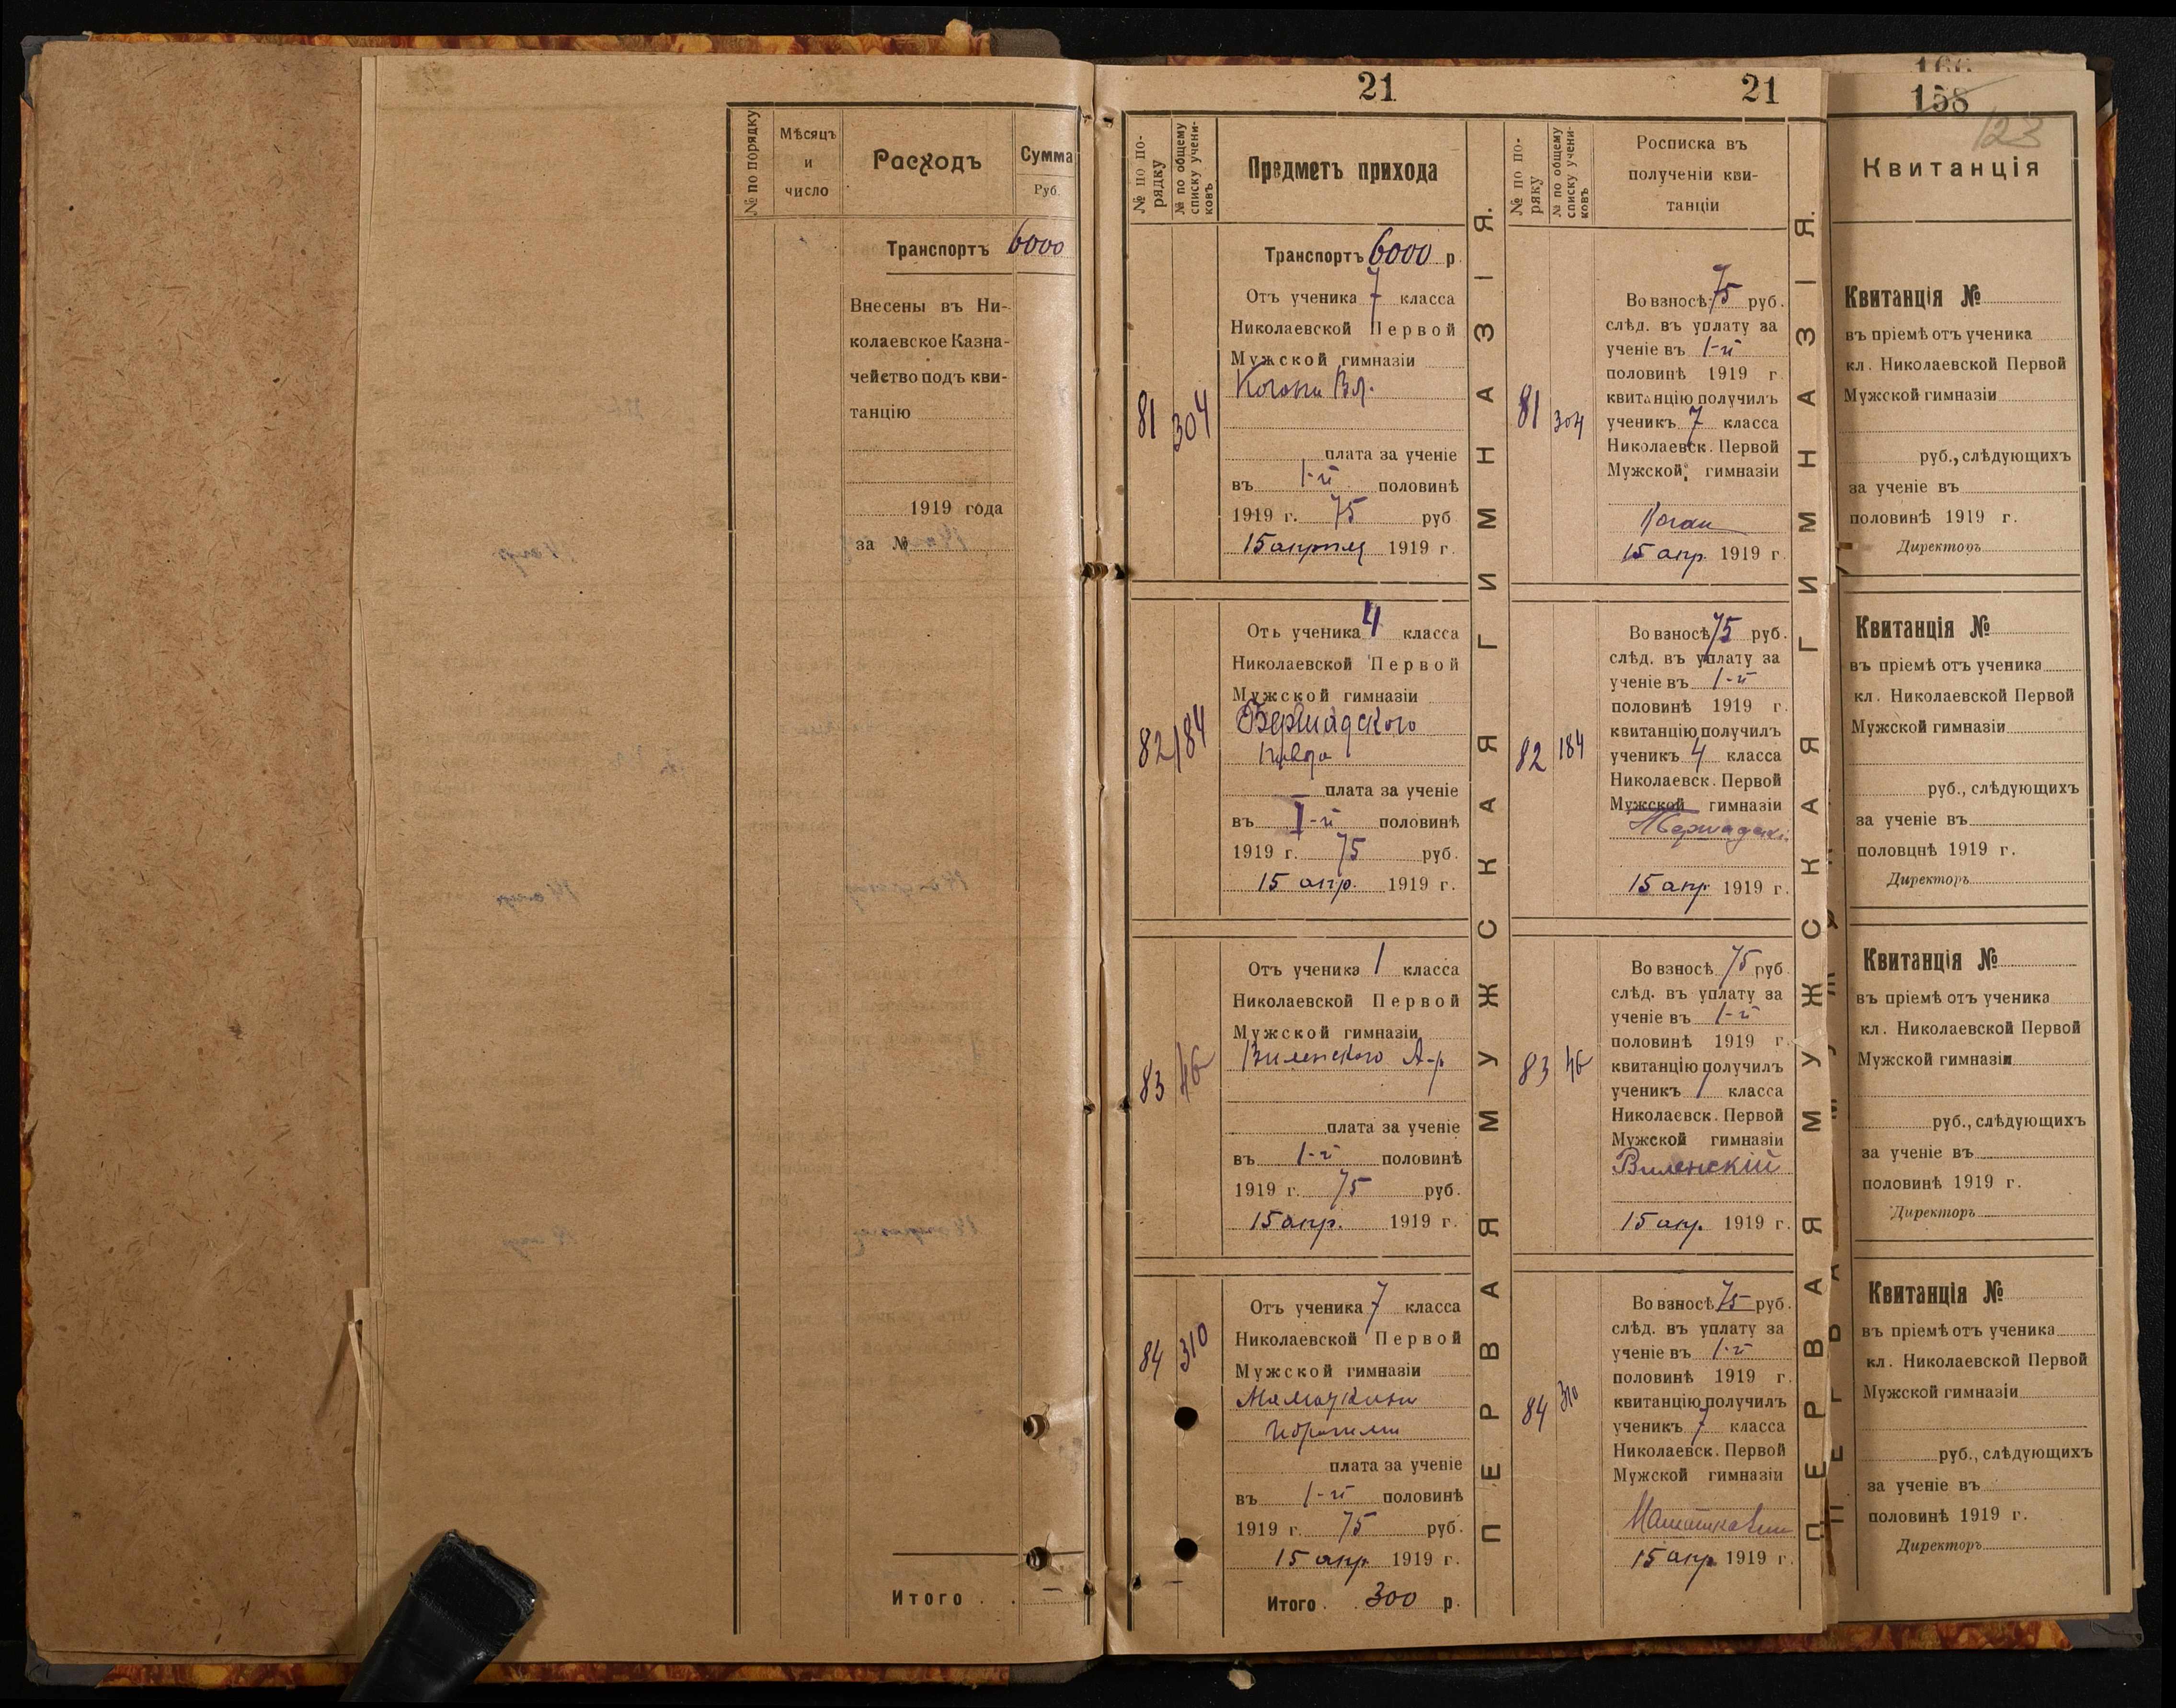 № по порядку
Мѣсяцъ
и
число
Расходъ
Сумма
Руб.
Транспортъ 6000
Внесены въ Ни-
колаевское Казна-
чейство подъ кви-
танцію
1919 года
за №
Итого . .
21
№ по по-
рядку
№ по общему
списку учени-
ковъ
Предметъ прихода
Транспортъ 6000 р.
81
304
Отъ ученика 7 класса
Николаевской Первой
Мужской гимназіи
Когана Вл.
плата за ученіе
въ 1-й половинѣ
1919 г. 75 руб
15 апрѣля 1919 г.
82
184
Отъ ученика 4 класса
Николаевской Первой
Мужской гимназіи
Бершадского
плата за ученіе
въ I-й половинѣ
1919 г. 75 руб.
15 апр. 1919 г.
83
46
Отъ ученика 1 класса
Николаевской Первой
Мужской гимназіи
Виленского А-р
плата за ученіе
въ 1-й половинѣ
1919 г. 75 руб.
15 апр. 1919 г.
84
310
Отъ ученика 7 класса
Николаевской Первой
Мужской гимназіи
плата за ученіе
въ 1-й половинѣ
1919 г. 75 руб.
15 апр. 1919 г.
Итого . . 300 р.
ПЕРВАЯ МУЖСКАЯ ГИМНАЗІЯ.
21
№ по по-
ряку
№ по общему
списку учени-
ковъ
Росписка въ
полученіи кви-
танціи
81
304
Во взносѣ 75 руб.
слѣд. въ уплату за
ученіе въ 1-й
половинѣ 1919 г.
квитанцію получилъ
ученикъ 7 класса
Николаевск. Первой
Мужской гимназіи
Коган
15 апр. 1919 г.
82
184
Во взносѣ 75 руб.
слѣд. въ уплату за
ученіе въ 1-й
половинѣ 1919 г.
квитанцію получилъ
ученикъ 4 класса
Николаевск. Первой
Мужской гимназіи
15 апр 1919 г.
83
46
Во взносѣ 75 руб
слѣд. въ уплату за
ученіе въ 1-й
половинѣ 1919 г.
квитанцію получилъ
ученикъ 1 класса
Николаевск. Первой
Мужской гимназіи
Виленскій
15 апр. 1919 г.
84
310
Во взносѣ 75 руб.
слѣд. въ уплату за
ученіе въ 1-й
половинѣ 1919 г.
квитанцію получилъ
ученикъ 7 класса
Николаевск. Первой
Мужской гимназіи
15 апр. 1919 г.
ПЕРВАЯ МУЖСКАЯ ГИМНАЗІЯ.
158
123
Квитанція
Квитанція №
въ пріемѣ отъ ученика
кл. Николаевской Первой
Мужской гимназіи
руб., слѣдующихъ
за ученіе въ
половинѣ 1919 г.
Директоръ
Квитанція №
въ пріемѣ отъ ученика
кл. Николаевской Первой
Мужской гимназіи
руб., слѣдующихъ
за ученіе въ
половцнѣ 1919 г.
Директоръ
Квитанція №
въ пріемѣ отъ ученика
кл. Николаевской Первой
Мужской гимназіи
руб., слѣдующихъ
за ученіе въ
половинѣ 1919 г.
Директоръ
Квитанція №
въ пріемѣ отъ ученика
кл. Николаевской Первой
Мужской гимназіи
руб., слѣдующихъ
за ученіе въ
половинѣ 1919 г.
Директоръ